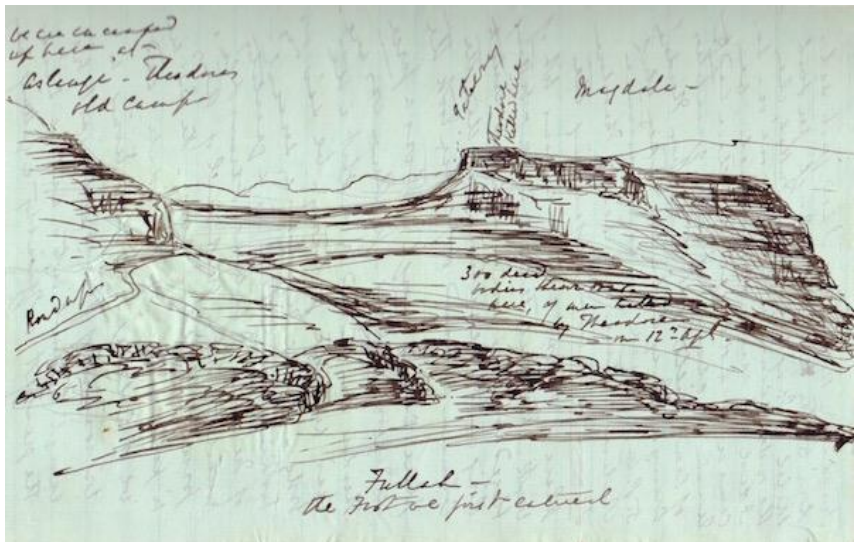 we are encamped
up here at
Aslangie - Theodores
old camp
Gateway
Theodore
killed here
Magdala -
Road up
300 dead
bodies thrown over
here, of men killed
by Theodore
on 12th Apl.
Fullah -
the First we first entered